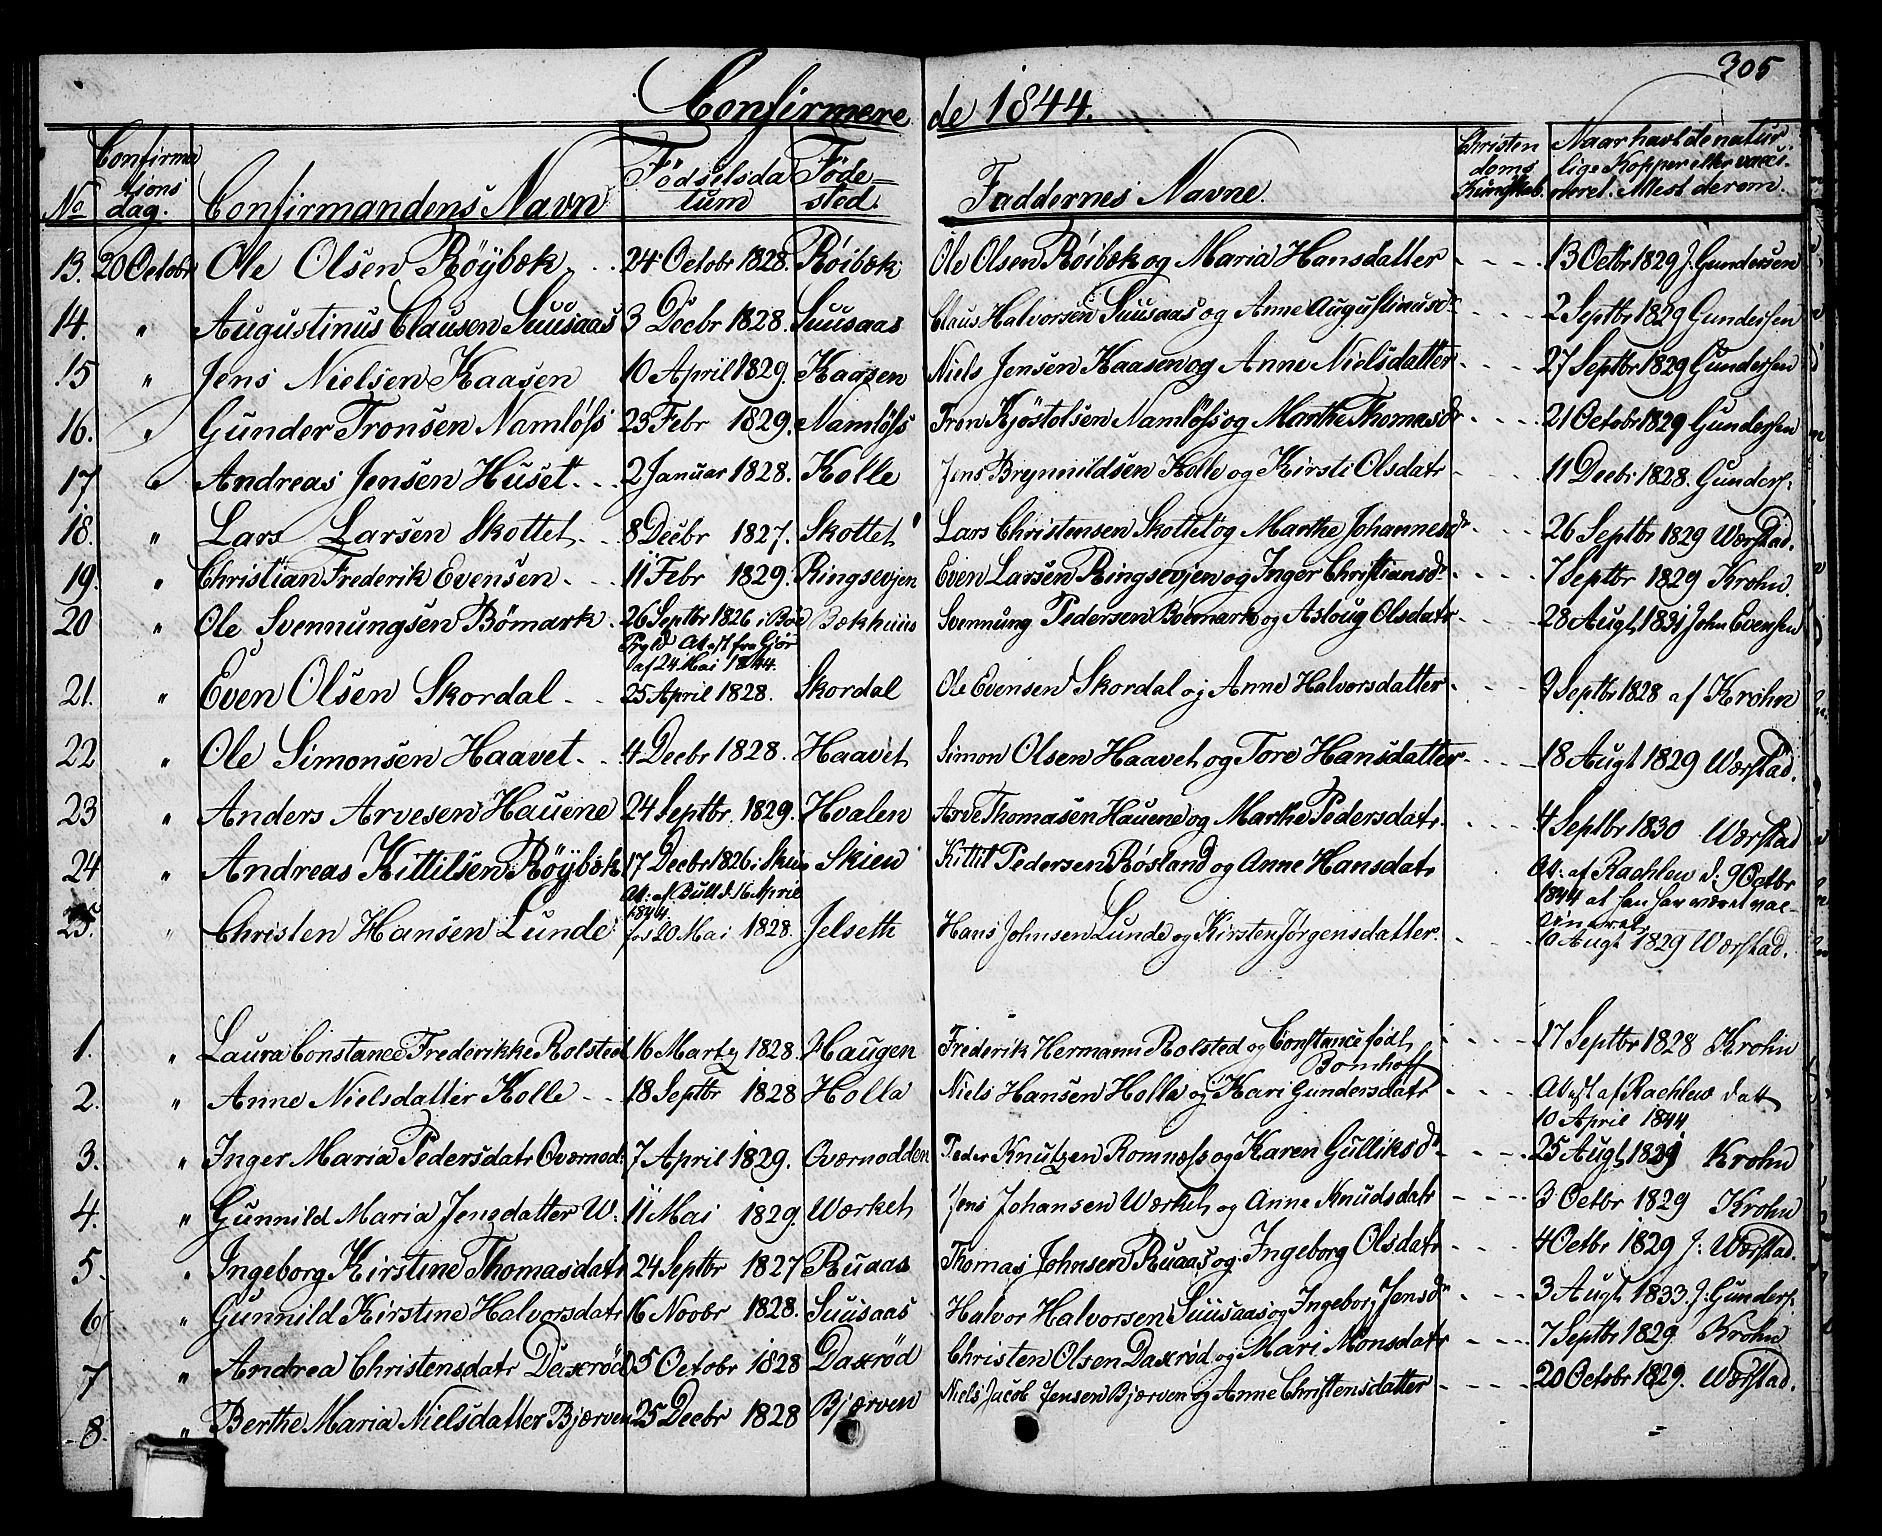 305
Confirmerede 1844.
No Confirmationsdag. Confirmandens Navn Fødselsdatum Fødested Faddernes Navne. Christendoms Kundskab. Naar havt de naturlige Kopper eller vaccineret. Attest derom.
13. 20 Octobr Ole Olsen Röybæk 24 Octobr 1828. Röibæk Ole Olsen Röibæk og Maria Hansdatter 13 Octbr 1829 J. Gundersen
14. " Augustinus Clausen Suusaas 3 Decbr 1828. Suusaas Claus Halvorsen Suusaas og Anne Augustinusdr 2 Septbr 1829 Gundersen
15 " Jens Nielsen Kaasen 10 April 1829. Kaasen Niels Jensen Kaasen og Anne Nielsdatter 27 Septbr 1829 Gundersen
16. " Gunder Tronsen Namløss 23 Febr 1829. Namløss Tron Kjøstolsen Namløss og Marthe Thomasdr 21 Octobr 1829 Gundersen
17 " Andreas Jensen Huset 2 Januar 1828. Kolle Jens Brynnildsen Kolle og Kirsti Olsdatr 11 Decbr 1828. Gunders.
18. " Lars Larsen Skottet 8 Decbr 1827. Skottet Lars Christensen Skottet og Marthe Johannesdr 26 Septbr 1829 Wærstad.
19. " Christian Frederik Evensen 11 Febr 1829. Ringsevjen Even Larsen Ringsevjen og Inger Christiansdr 7 Septbr 1829 Krohn.
20 " Ole Svennungsen Bömark 26 Septbr 1826 i Boe Bækhuus Svennung Pedersen Böemark og Asloug Olsdatr 28 Augt 1831 John Evensen
Prgld Attest fra
af 24 Mai 1844.
21. " Even Olsen Skordal 25 April 1828. Skordal Ole Evensen Skordal og Anne Halvorsdatter 9 Septbr 1828 af Krohn
22 " Ole Simonsen Haavet 4 Decbr 1828. Haavet Simon Olsen Haavet og Tore Hansdatter 18 Augt 1829 Wærstad.
23 " Anders Arvesen Hauene 24 Septbr. 1829. Hvalen Arve Thomasen Hauene og Marthe Pedersdatr. 4 Septbr 1830 Wærstad
24 " Andreas Kittilsen Röybæk 17 Decbr 1826 i Skien Skien Kittil Pedersen Røsland og Anne Hansdatr At: af Rachlew d: 9 Octbr
Att: af Bull d. 16 April 1844. 1844 at han har været vaccineret,
25. " Christen Hansen Lunde 20 Mai 1828. Jelseth Hans Johnsen Lunde og Kirsten Jörgensdatter. 10 Augt 1829 Wærstad.
1. " Laura Constance Frederikke Rolsted 16 Martz 1828. Haugen Frederik Hermann Rolsted og Constance født Bomhoff 17 Septbr 1828 Krohn
2. " Anne Nielsdatter Kolle 18 Septbr 1828 Holla Niels Hansen Holla og Kari Gundersdatr Attest af Rachlew datt
10 April 1844
3. " Inger Maria Pedersdatr Overnod: 7 April 1829. Overnodden Peder Knutzen Romness og Karen Gulliksdr 25 Augt Krohn
4. " Gunnild Maria Jensdatter W. 11 Mai 1829. Wærket Jens Johansen Wærket og Anne Knudsdatr 3 Octbr 1829 Krohn
5. " Ingeborg Kirstine Thomasdatr 24 Septbr 1827 Ruaas Thomas Johnsen Ruaas og Ingeborg Olsdatr 4 Octbr 1829 J: Wærstad.
6 " Gunnild Kirstine Halvorsdatr 16 Novbr 1828. Suusaas Halvor Halvorsen Suusaas og Ingeborg Jensdr 3 Augt 1833. J: Gunders.
7 " Andrea Christensdatr Daxröd 5 Octobr 1828 Daxröd Christen Olsen Daxrød og Mari Monsdatr 7 Septbr 1829. Krohn
8. " Berthe Maria Nielsdatter Bjærven 25 Decbr 1828 Bjærven Niels Jacob Jensen Bjærven og Anne Christensdatter 20 Octobr 1829. Wærstad.